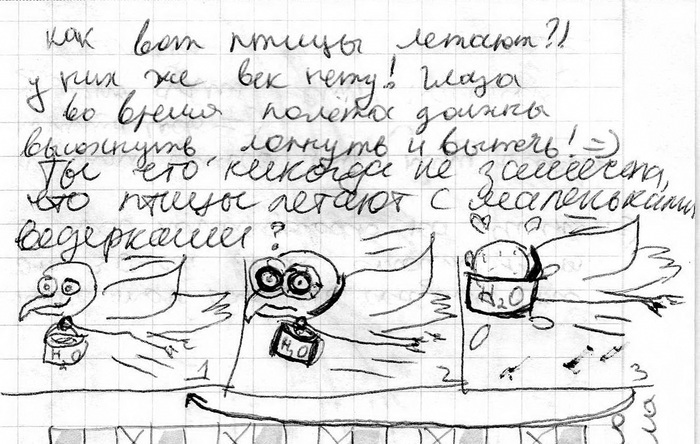 как вот птицы летают?!
у них же век нету! Глаза
во время полёта должны
высохнуть, лопнуть и вытечь! =)
Ты что, никогда не замечала,
что птицы летают с маленькими
ведерками?
H2O
1
H2O
2
H2O
3